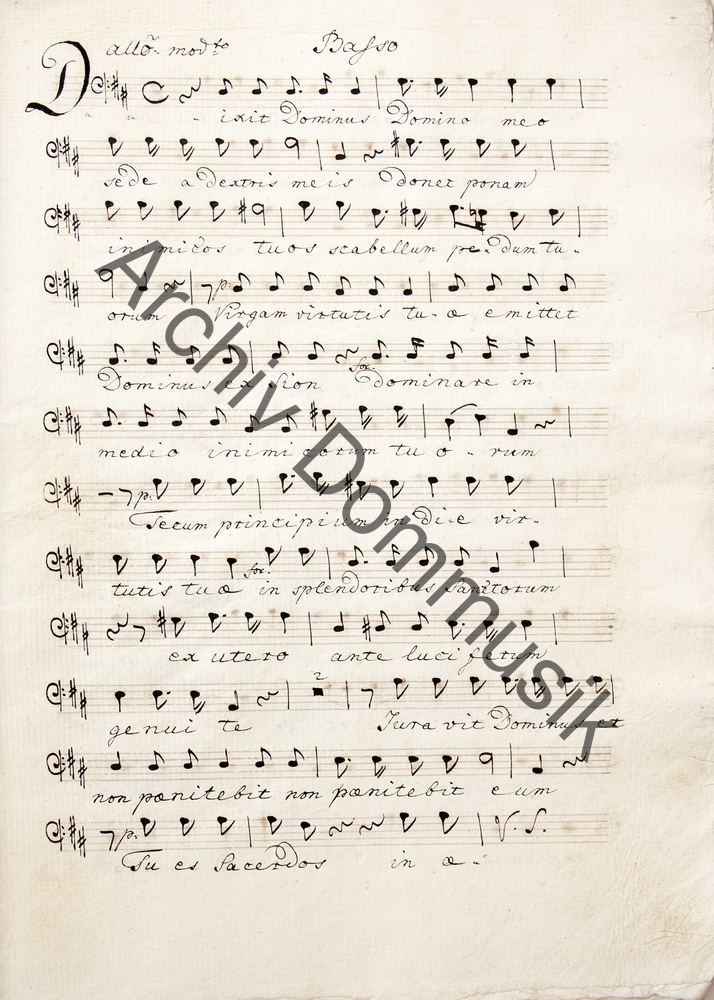 allo. modto Basso
Dixit Dominus Domino meo
sede a dextris meis donec ponam
inimicos tuos scabellum pe-dum tu-
orum p: Virgam virtutis tu-æ emittet
Dominus ex Sion for. dominare in
medio inimicorum tuo-rum
p: Tecum principium in di-e vir-
tutis tuæ for. in splendoribus Sanctorum
ex utero ante luciferum
genui te 2 Juravit Dominus et
non pœnitebit non pœnitebit eum
p: Tu es Sacerdos in æ- V. S.
Archiv Dommusik